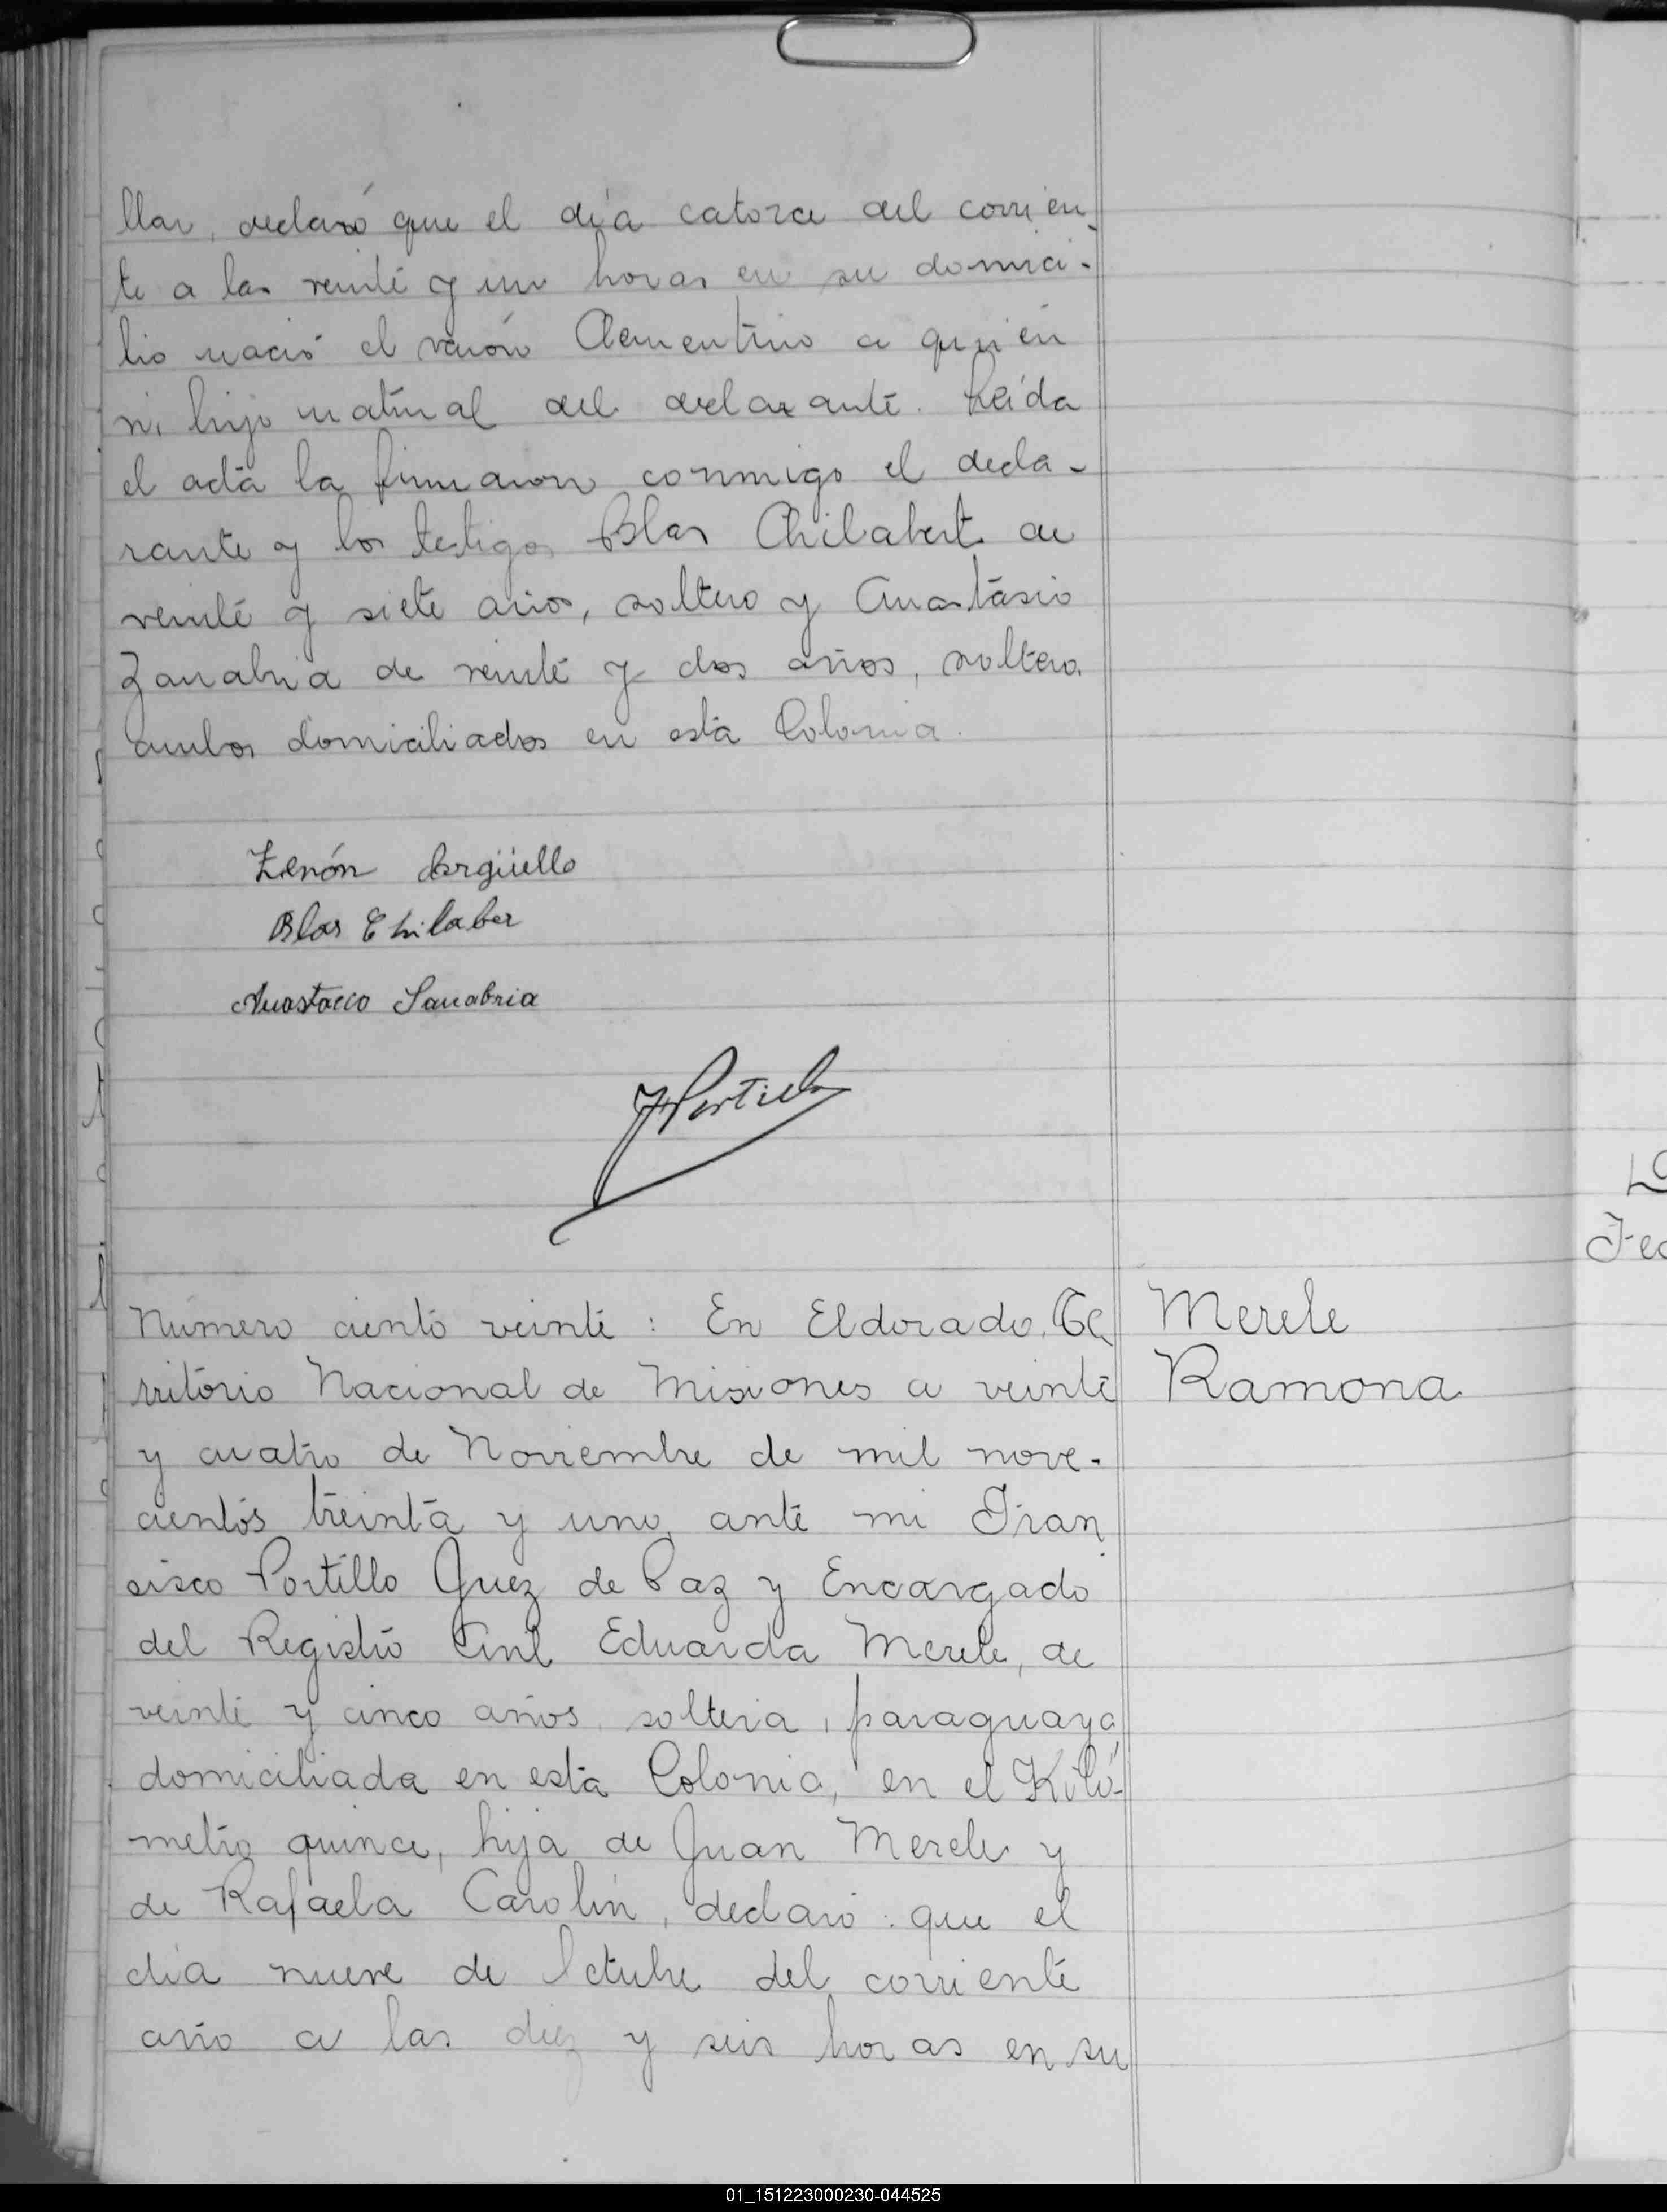 llar, declaró que el día catorce del corrien-
te a las veinte y un horas en su domici-
lio nació el varón Clementino a quien
vi, hijo natural del declarante. Leída
el acta la firmaron conmigo el decla-
rante y los testigos Blas Chilabert de
veinte y siete años, soltero y Anastásio
Zanabria de veinte y dos años, soltero,
ambos domiciliados en esta Colonia.
Zenón Argüello
Blas Chilaber
Anastacio Sanabria
F Portillo
Número ciento veinte: En Eldorado, Te
Merele
rritorio Nacional de Misiones a veinte
Ramona
y cuatro de Noviembre de mil nove-
cientos treinta y uno, ante mi Fran
cisco Portillo Juez de Paz y Encargado
del Registro Civil Eduarda Merele, de
veinte y cinco años, soltera, paraguaya,
domiciliada en esta Colonia, en el Kiló-
metro quince, hija de Juan Merele y
de Rafaela Carolin, declaró: que el
día nueve de Octubre del corriente
año a las diez y seis horas en su
Fec
01_151223000230-044525